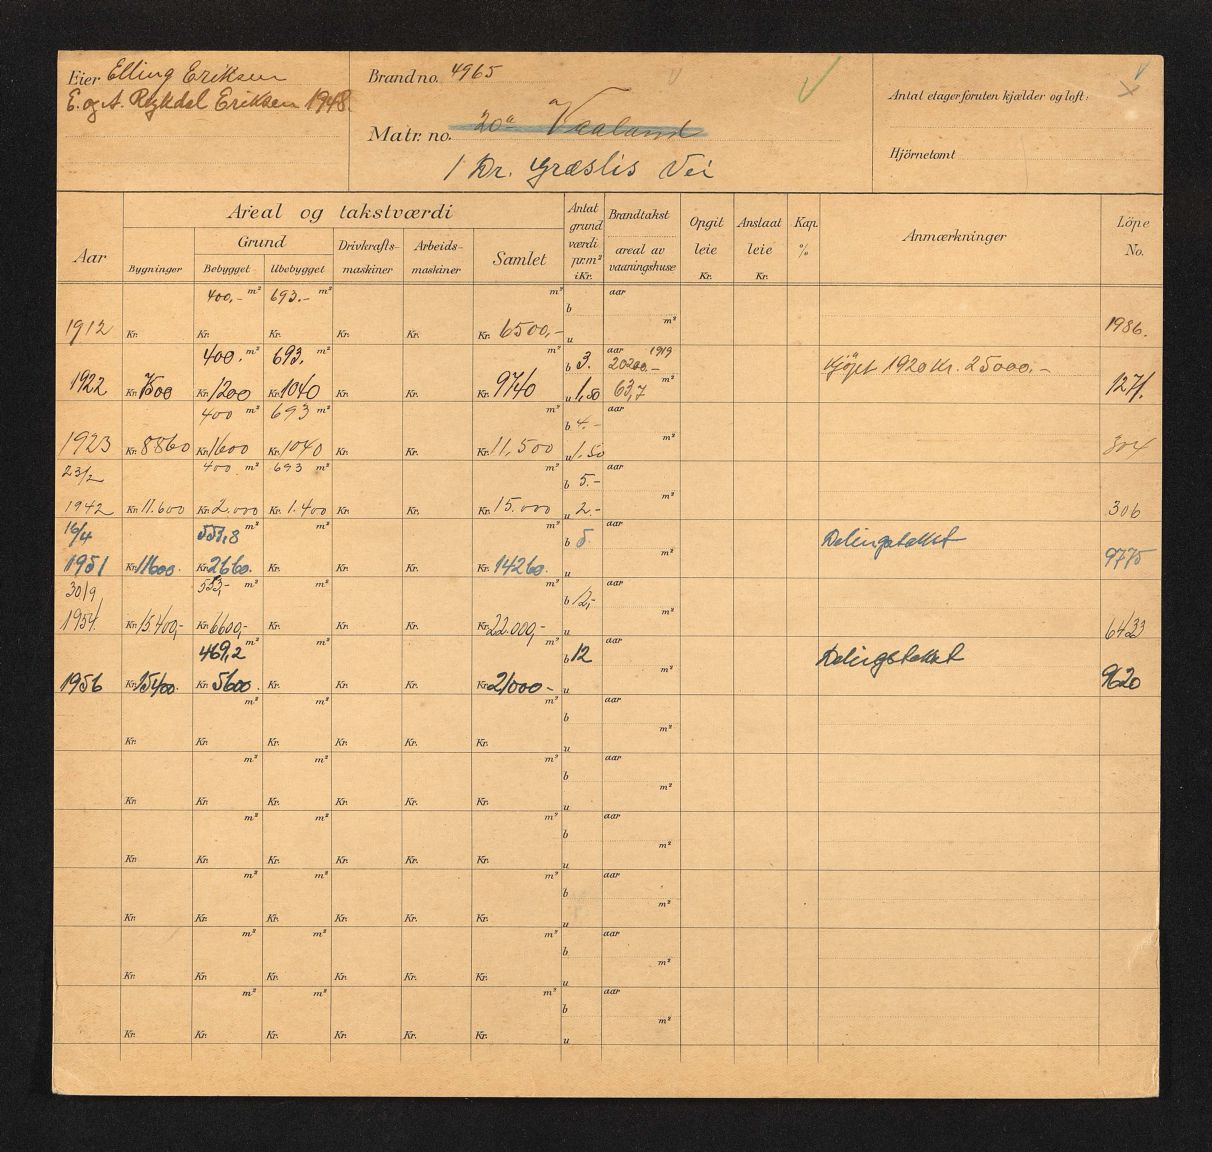 Eier Elling Eriksen
E. og A. Rygdal Eriksen 1948
Brand no. 4965
Matr. no. 20a Vaaland
1 Dr. Græslis Vei
Antal etager foruten kjælder og loft:
Hjörnetomt
Aar
Areal og takstværdi
Bygninger
Grund
Bebygget
Ubebygget
Drivkrafts-maskiner
Arbeids-maskiner
Samlet
Antat grundværdi pr. m² i Kr.
Brandtakst
areal av vaaningshuse
Opgit leie Kr.
Anslaat leie Kr.
Kap. %
Anmærkninger
Löpe No.
400,- m² 693.- m² m² b aar
1912 Kr. Kr. Kr. Kr. Kr. Kr. 6500,- u m² 1986.
400. m² 693. m² m² b 3. aar 1919 20200.- Kjøpt 1920 Kr. 25000,-
1922 Kr. 7500 Kr. 1200 Kr. 1040 Kr. Kr. Kr. 9740 u 1,50 63,7 m² 1271.
400 m² 693 m² m² b 4.- aar
1923 Kr. 8860 Kr. 1600 Kr. 1040 Kr. Kr. Kr. 11,500 u 1.50 m² 304
23/2 400 m² 693 m² m² b 5.- aar
1942 Kr. 11.600 Kr. 2.000 Kr. 1.400 Kr. Kr. Kr. 15.000 u 2.- m² 306
16/4 m² m² m² b 5 aar Delingstakst
1951 Kr. 11600. Kr. 2660. Kr. Kr. Kr. Kr. 14260. u m² 9775
30/9 533,- m² m² m² b 12,- aar
1954. Kr. 15.400,- Kr. 6600,- Kr. Kr. Kr. Kr. 22.000,- u m² 6433
469,2 m² m² m² b 12 aar Delingstakst
1956 Kr. 15400. Kr. 5600. Kr. Kr. Kr. Kr. 21000- u m² 9620
m² m² m² b aar
Kr. Kr. Kr. Kr. Kr. Kr. u m²
m² m² m² b aar
Kr. Kr. Kr. Kr. Kr. Kr. u m²
m² m² m² b aar
Kr. Kr. Kr. Kr. Kr. Kr. u m²
m² m² m² b aar
Kr. Kr. Kr. Kr. Kr. Kr. u m²
m² m² m² b aar
Kr. Kr. Kr. Kr. Kr. Kr. u m²
m² m² m² b aar
Kr. Kr. Kr. Kr. Kr. Kr. u m²